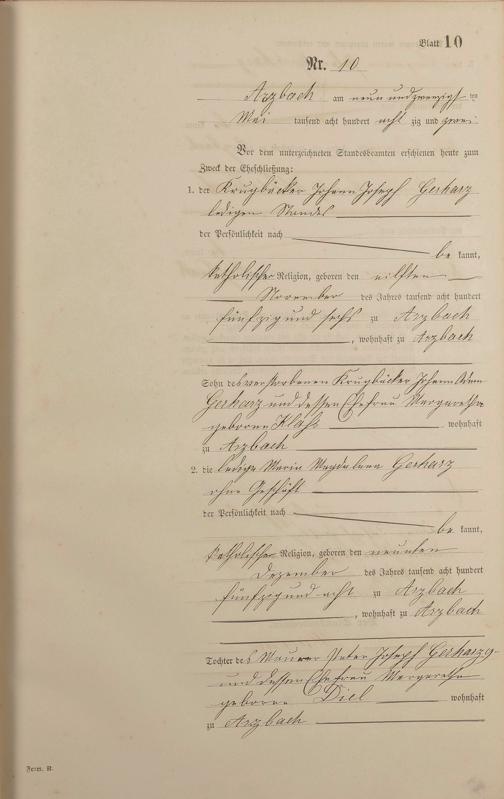 Blatt 10
Nr. 10
Arzbach am neun und zwanzigsten
Mai tausend acht hundert acht zig und zwei
Vor dem unterzeichneten Standesbeamten erschienen heute zum
Zweck der Eheschließung:
1. der Krugbäcker Johann Joseph Gerharz
ledigen Standes
der Persönlichkeit nach
be kannt,
katholischer Religion, geboren den eilften
November des Jahres tausend acht hundert
fünfzig und sechs zu Arzbach
, wohnhaft zu Arzbach
Sohn des verstorbenen Krugbäcker Johann Adam
Gerharz und dessen Ehefrau Margaretha
geborene Klaß wohnhaft
zu Arzbach
2. die ledige Maria Magdalena Gerharz
ohne Geschäft
der Persönlichkeit nach
be kannt,
katholischer Religion, geboren den neunten
Dezember des Jahres tausend acht hundert
fünfzig und acht zu Arzbach
, wohnhaft zu Arzbach
Tochter des Maurer Peter Joseph Gerharz
und dessen Ehefrau Margaretha
geborene Diel wohnhaft
zu Arzbach
Form. B.